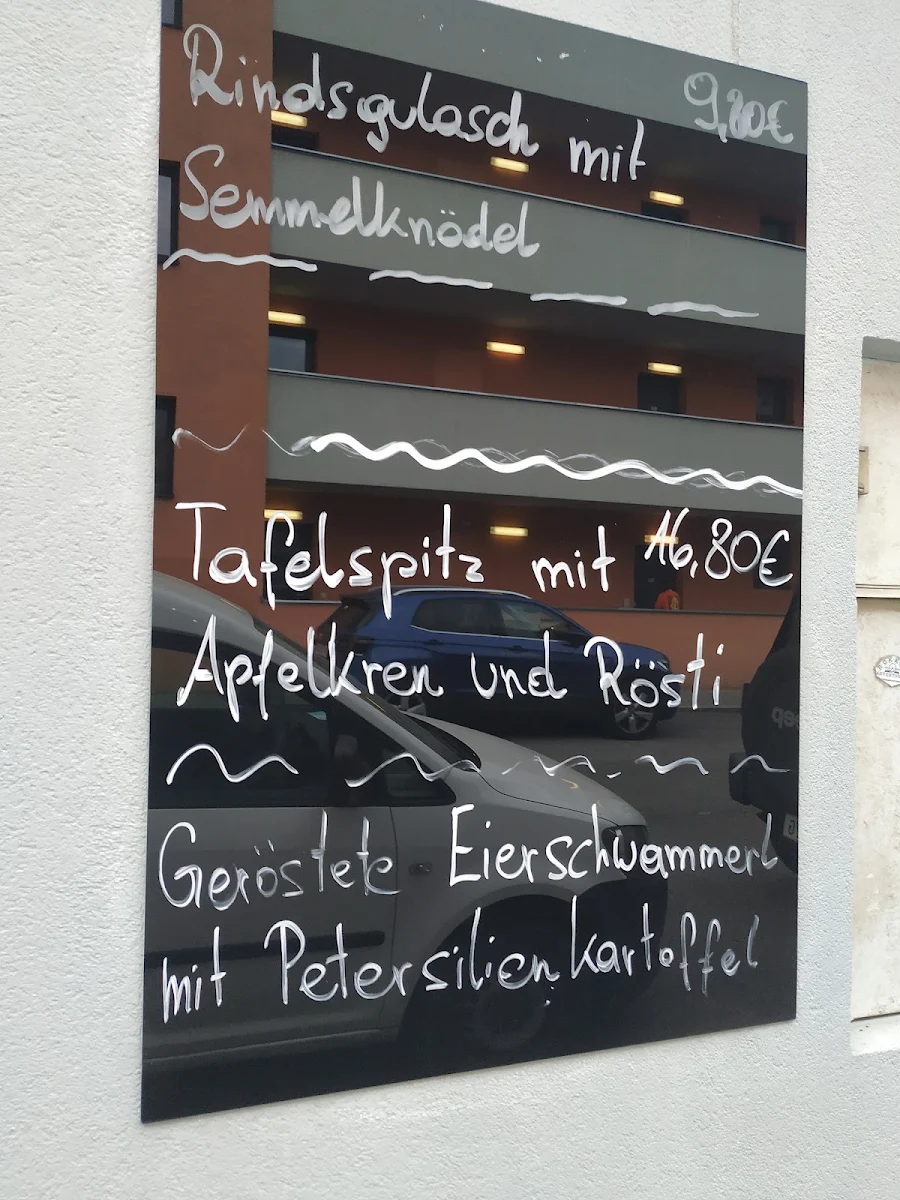 Rindsgulasch mit 9,80€
Semmelknödel
Tafelspitz mit 16,80€
Apfelkren und Rösti
Geröstete Eierschwammerl
mit Petersilienkartoffel